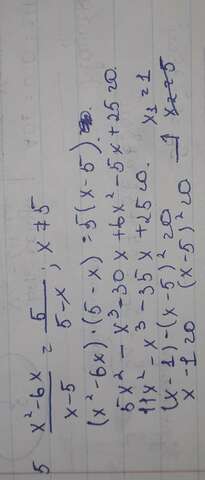 5 (x²-6x)/(x-5) = 5/(5-x) ; x≠5
(x²-6x)·(5-x) = 5(x-5).
5x²-x³-30x+6x²-5x+25=0.
11x²-x³-35x+25=0.
(x-1)·(x-5)²=0 x₁=1
x-1=0 (x-5)²=0 x₂=5